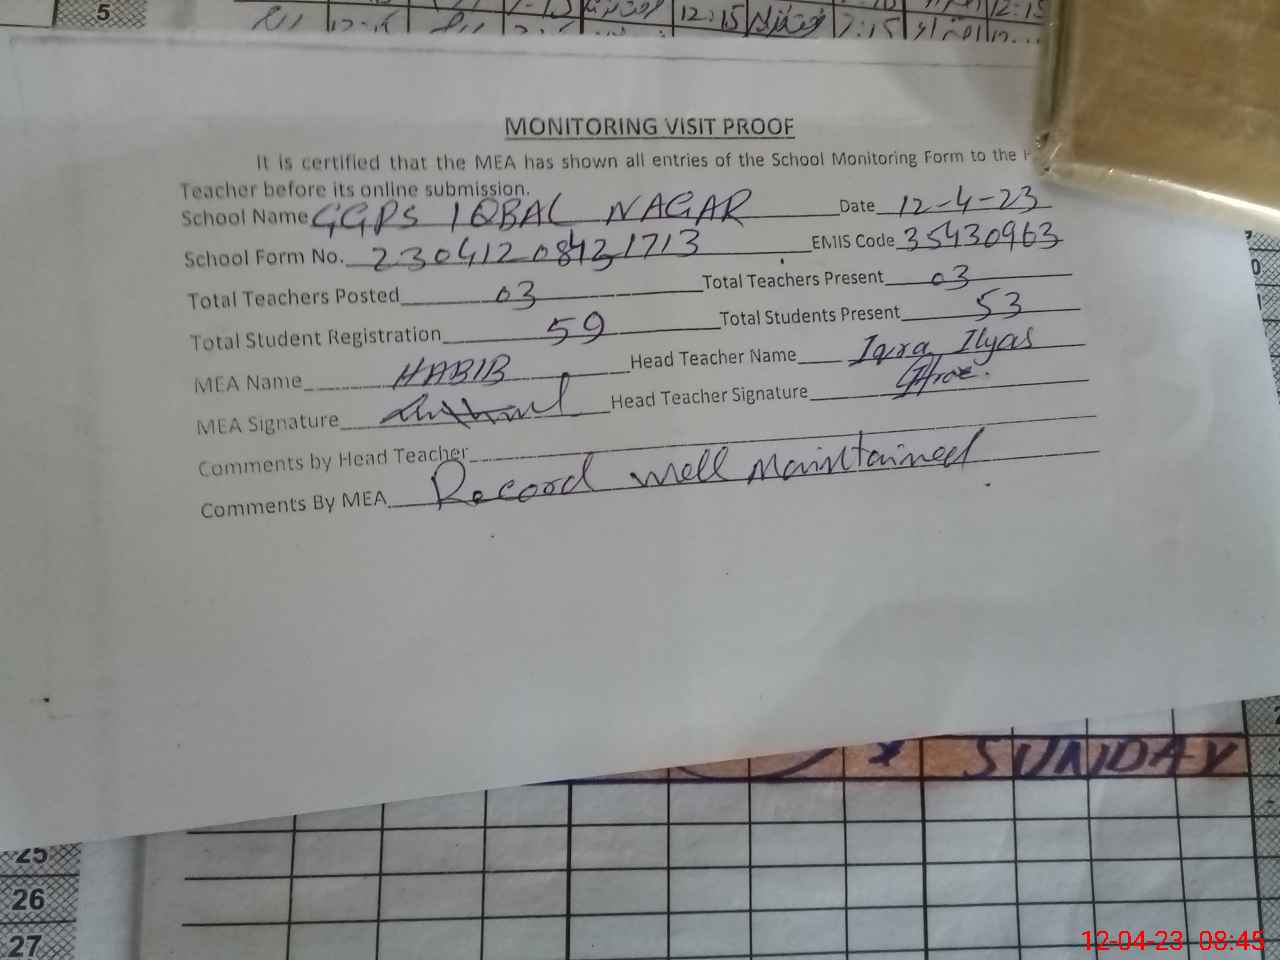 5
12:15
7:15
12:15
MONITORING VISIT PROOF
It is certified that the MEA has shown all entries of the School Monitoring Form to the
Teacher before its online submission.
School Name GGPS IQBAL NAGAR Date 12-4-23
School Form No. 23041208421713 EMIS Code 35430963
Total Teachers Posted 03 Total Teachers Present 03
Total Student Registration 59 Total Students Present 53
MEA Name HABIB Head Teacher Name Iqra Ilyas
MEA Signature Head Teacher Signature
Comments by Head Teacher
Comments By MEA Record well maintained
SUNDAY
25
26
27
12-04-23 08:45